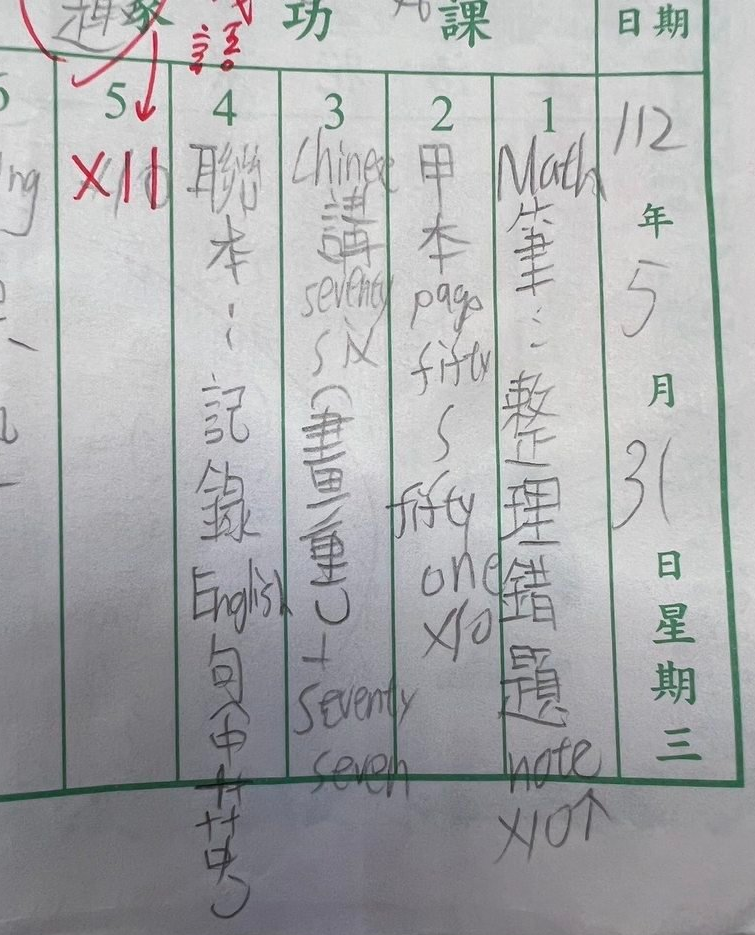 日期
112年5月31日星期三
功課
1 Math筆：整理錯題note X10↑
2 甲本page fifty ~ fifty one X10
3 Chinese講seventy six（畫重）+ seventy seven
4 聯本：記錄English句（中
5 X11